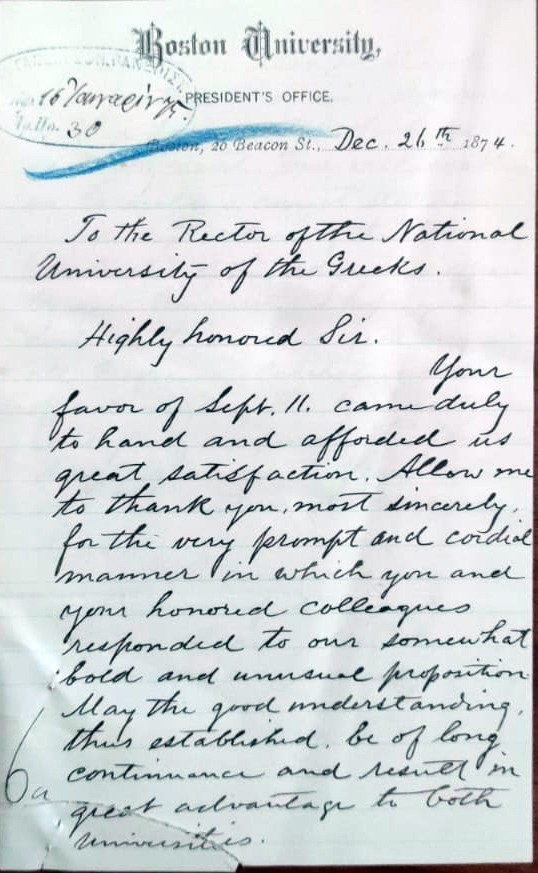 Boston University,
PRESIDENT'S OFFICE.
16 Ἰαναρίου 75
30
Boston, 20 Beacon St., Dec. 26th 1874.
To the Rector of the National
University of the Greeks.
Highly honored Sir.
Your
favor of Sept. 11. came duly
to hand and afforded us
great satisfaction. Allow me
to thank you, most sincerely,
for the very prompt and cordial
manner in which you and
your honored colleagues
responded to our somewhat
bold and unusual proposition
May the good understanding,
thus established, be of long
continuance and result in
great advantage to both
Universities.
6a